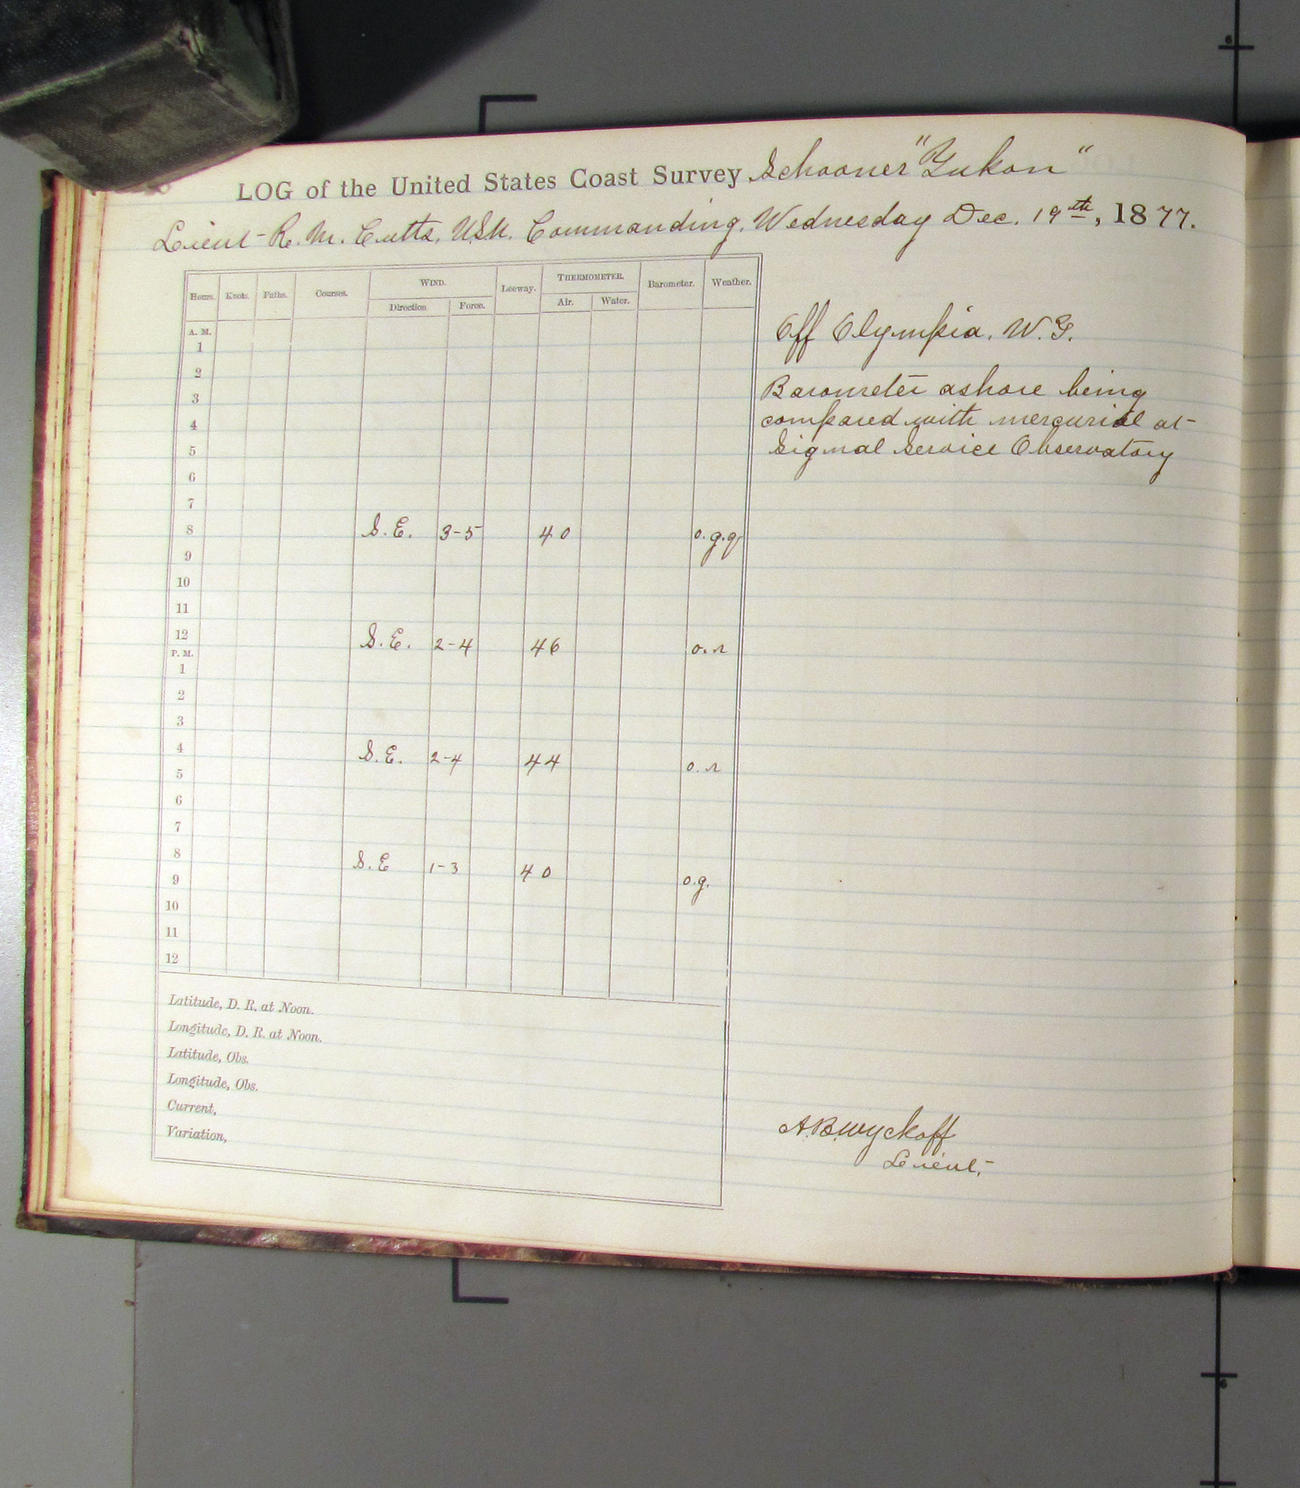 LOG of the United States Coast Survey Schooner "Yukon"
Lieut R. M. Cutts, USN. Commanding, Wednesday Dec. 19th, 1877.
Hours. Knots. Faths. Courses. WIND. Leeway. THERMOMETER. Barometer. Weather.
Direction Force. Air. Water.
A. M.
1
2
3
4
5
6
7
8 S.E. 3-5 40 o.g.q
9
10
11
12 S.E. 2-4 46 o.r
P. M.
1
2
3
4 S.E. 2-4 44 o.r
5
6
7
8 S.E 1-3 40 o.g.
9
10
11
12
Latitude, D. R. at Noon.
Longitude, D. R. at Noon.
Latitude, Obs.
Longitude, Obs.
Current,
Variation,
Off Olympia, W.T.
Barometer ashore being
compared with mercurial at
Signal Service Observatory
A.B.Wyckoff
Lieut,
6
6